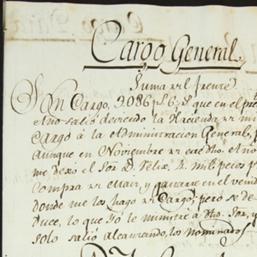 Cargo General.
Suma rrl frente
Son Cargo, 2086 ps 6 rrs que en el pre
Año salió deviendo la Hacienda rr mi
Cargo à la Administracion General, p
aunque en Noviembre rr este Año
me dexo el Sor D. Felix 2 mil pesos p
Compra rr Maiz, y gastarse en el vend
donde me los hago rr Cargo, pero se de
duce, lo que yo le ministré à dho. Sor, y
solo salió alcanzando, los nominados